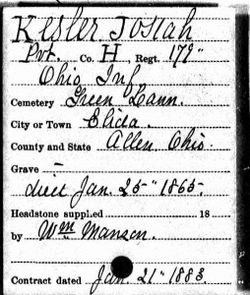 Kesler Josiah
Pvt. Co. H, Regt. 179"
Ohio Inf
Cemetery Green Lawn.
City or Town Elida.
County and State Allen, Ohio.
Grave –
died Jan. 25" 1865.
Headstone supplied 18
by Wm Manson.
Contract dated Jan. 21" 1883.